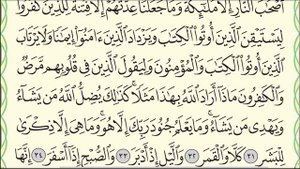 أَصْحَٰبَ ٱلنَّارِ إِلَّا مَلَٰٓئِكَةً وَمَا جَعَلْنَا عِدَّتَهُمْ إِلَّا فِتْنَةً لِّلَّذِينَ كَفَرُوا۟
لِيَسْتَيْقِنَ ٱلَّذِينَ أُوتُوا۟ ٱلْكِتَٰبَ وَيَزْدَادَ ٱلَّذِينَ ءَامَنُوٓا۟ إِيمَٰنًا وَلَا يَرْتَابَ
ٱلَّذِينَ أُوتُوا۟ ٱلْكِتَٰبَ وَٱلْمُؤْمِنُونَ وَلِيَقُولَ ٱلَّذِينَ فِى قُلُوبِهِم مَّرَضٌ
وَٱلْكَٰفِرُونَ مَاذَآ أَرَادَ ٱللَّهُ بِهَٰذَا مَثَلًا كَذَٰلِكَ يُضِلُّ ٱللَّهُ مَن يَشَآءُ
وَيَهْدِى مَن يَشَآءُ وَمَا يَعْلَمُ جُنُودَ رَبِّكَ إِلَّا هُوَ وَمَا هِىَ إِلَّا ذِكْرَىٰ
لِلْبَشَرِ ٣١ كَلَّا وَٱلْقَمَرِ ٣٢ وَٱلَّيْلِ إِذْ أَدْبَرَ ٣٣ وَٱلصُّبْحِ إِذَآ أَسْفَرَ ٣٤ إِنَّهَا